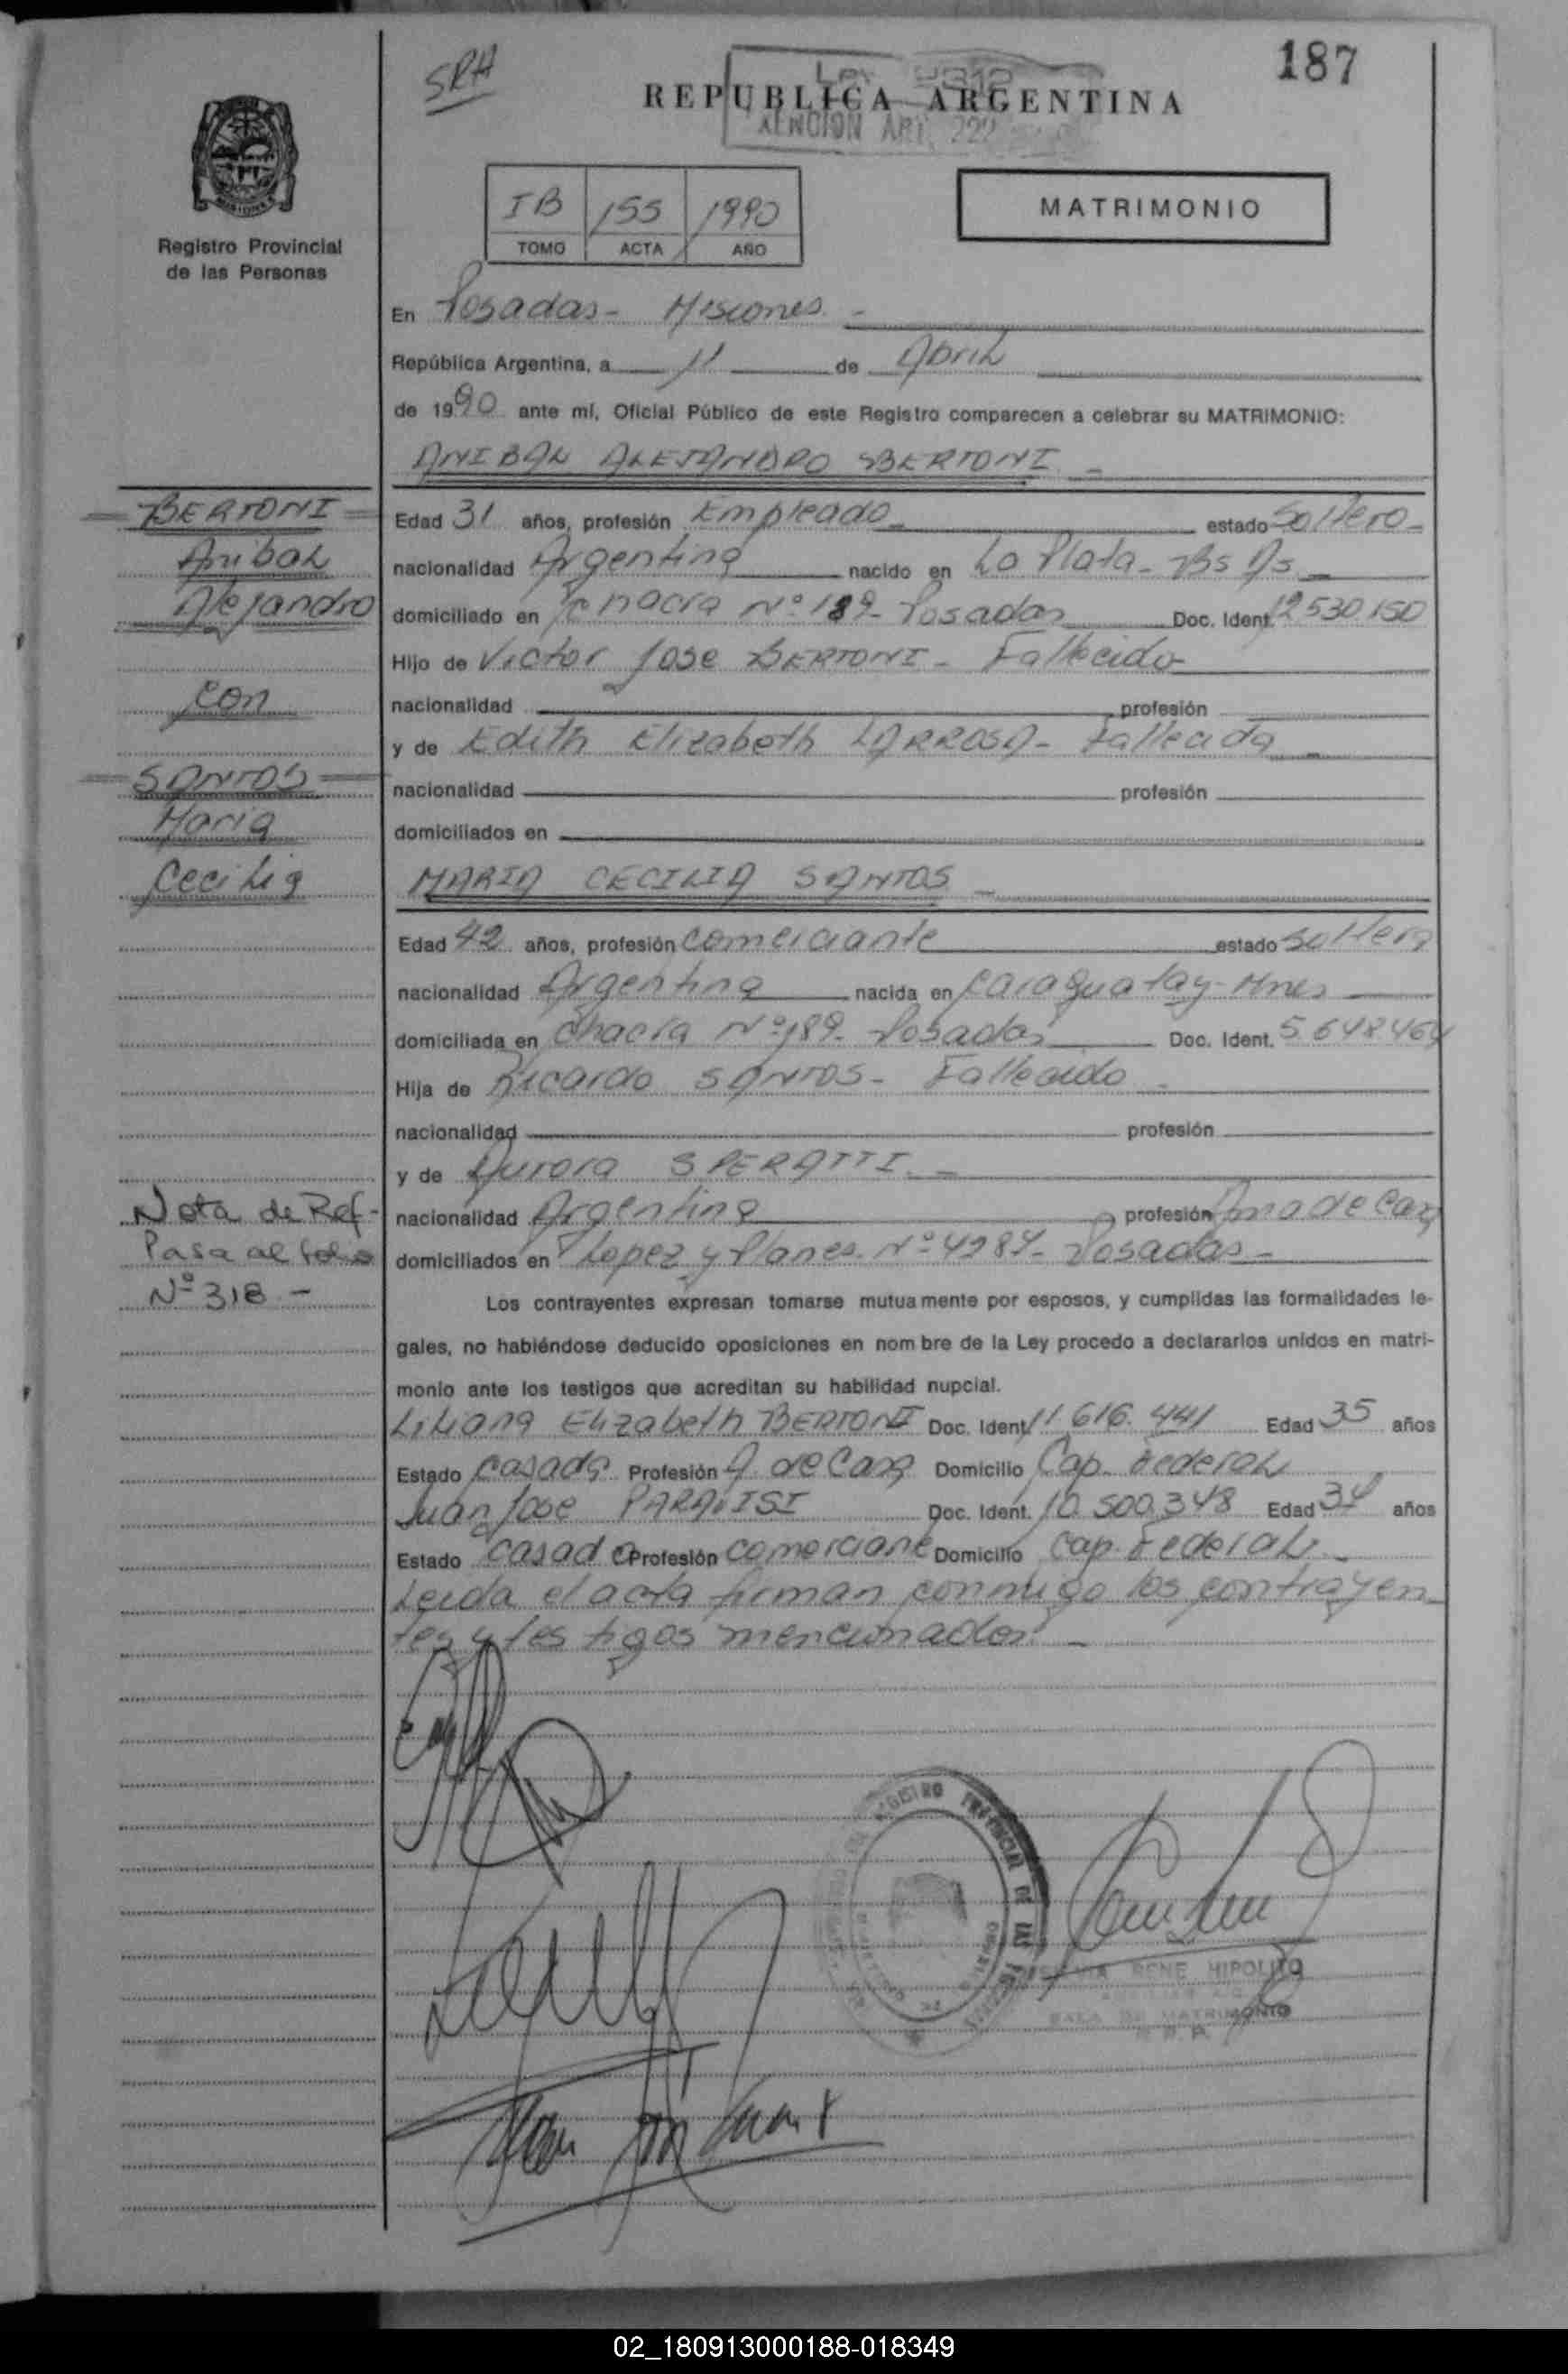 187
SRH
Ley
REPUBLICA ARGENTINA
ART. 222
IB 155 1990
TOMO ACTA AÑO
MATRIMONIO
Registro Provincial
de las Personas
En Posadas - Misiones. -
República Argentina, a 11 de Abril
de 1990 ante mí, Oficial Público de este Registro comparecen a celebrar su MATRIMONIO:
ANIBAL ALEJANDRO BERTONI -
BERTONI
Anibal
Alejandro
con
SANTOS
Maria
Cecilia
Edad 31 años, profesión Empleado estado Soltero
nacionalidad Argentina nacido en La Plata - Bs As
domiciliado en Chacra Nº 189 - Posadas Doc. Ident. 12.530.150
Hijo de Victor Jose BERTONI - Fallecido
nacionalidad profesión
y de Edith Elizabeth LARROSA - Fallecida
nacionalidad profesión
domiciliados en
MARIA CECILIA SANTOS -
Edad 42 años, profesión comerciante estado soltera
nacionalidad Argentina nacida en Caraguatay - Mnes
domiciliada en Chacra Nº 189 - Posadas Doc. Ident. 5.648.464
Hija de Ricardo SANTOS - Fallecido
nacionalidad profesión
y de Aurora SPERATTI. -
nacionalidad Argentina profesión Ama de Casa
domiciliados en Lopez y Planes Nº 4287 - Posadas -
Nota de Ref -
Pasa al folio
Nº 318 -
Los contrayentes expresan tomarse mutuamente por esposos, y cumplidas las formalidades le-
gales, no habiéndose deducido oposiciones en nombre de la Ley procedo a declararlos unidos en matri-
monio ante los testigos que acreditan su habilidad nupcial.
Liliana Elizabeth BERTONI Doc. Ident. 11.616.441 Edad 35 años
Estado casada Profesión A. de Casa Domicilio Cap. Federal
Juan Jose PARAVISI Doc. Ident. 10.500.348 Edad 34 años
Estado casado Profesión comerciante Domicilio Cap. Federal -
Leida el acta firman conmigo los contrayen-
tes y testigos mencionados. -
REGISTRO PROVINCIAL DE LAS
RENE HIPOLITO
SALA DE MATRIMONIO
R. P. P.
02_180913000188-018349